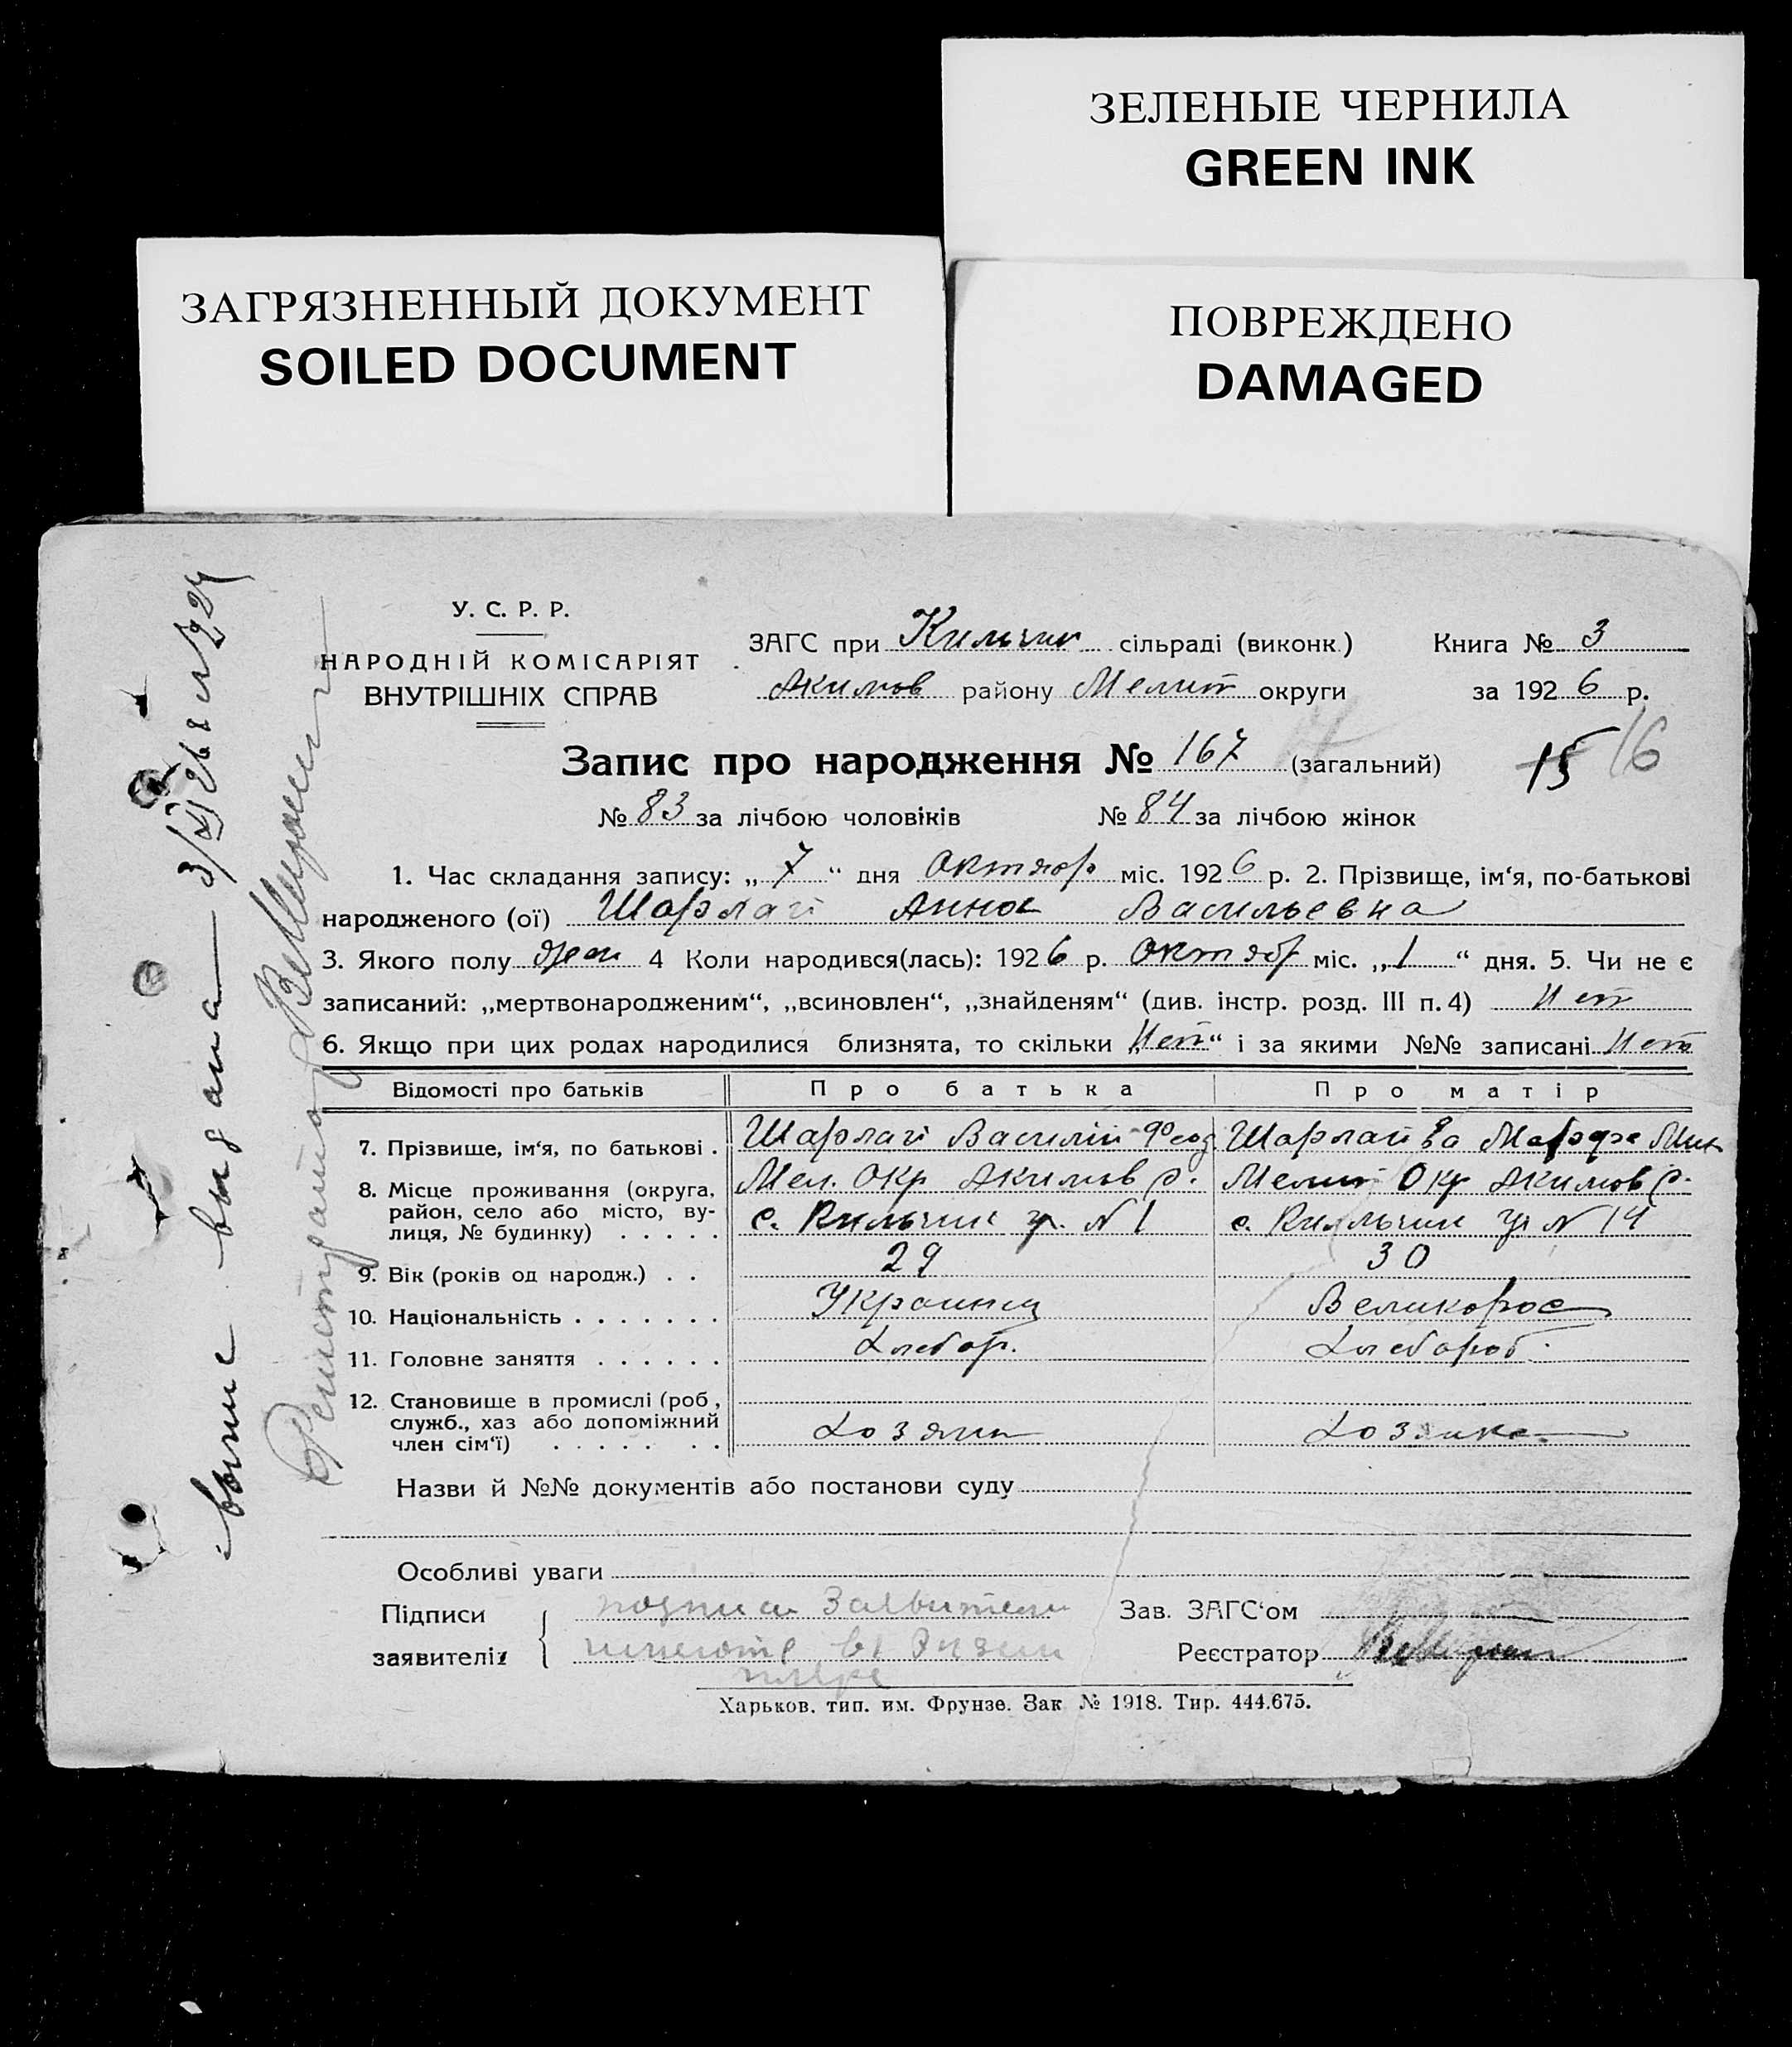 ЗЕЛЕНЫЕ ЧЕРНИЛА
GREEN INK
ЗАГРЯЗНЕННЫЙ ДОКУМЕНТ
SOILED DOCUMENT
ПОВРЕЖДЕНО
DAMAGED
У. С. Р. Р.
НАРОДНІЙ КОМІСАРІЯТ
ВНУТРІШНІХ СПРАВ
ЗАГС при Кильчик сільраді (виконк.) Книга № 3
Акимов району Мелит округи за 1926 р.
Запис про народження № 167 (загальний) 15 16
№ 83 за лічбою чоловіків № 84 за лічбою жінок
1. Час складання запису: „7“ дня октябр міс. 1926 р. 2. Прізвище, ім‘я, по-батькові
народженого (ої) Шарлай Анна Васильевна
3. Якого полу жен 4 Коли народився(лась): 1926 р. октябр міс. „1“ дня. 5. Чи не є
записаний: „мертвонародженим“, „всиновлен“, „знайденям“ (див. інстр. розд. III п. 4) Нет
6. Якщо при цих родах народилися близнята, то скільки „Нет“ і за якими №№ записані Нет
Відомості про батьків Про батька Про матір
7. Прізвище, ім‘я, по батькові . Шарлай Василий Шарлай ва Марфа
8. Місце проживання (округа, район, село або місто, вулиця, № будинку) . . . . .
Мел. Окр Акимов р. Мелит Окр Акимов р.
с. Кильчик ул. N 1 с. Кильчик ул N 14
9. Вік (років од народж.) . . 29 30
10. Національність . . . . . . . Украинец Великорос
11. Головне заняття . . . . . . Хлебор. Хлебороб.
12. Становище в промислі (роб, служб., хаз або допоміжний член сім‘ї) . . . . . . . Хозяин Хозяйка
Назви й №№ документів або постанови суду
Особливі уваги
Підписи
заявителів
подписи Заявители
имеютс в
Зав. ЗАГС‘ом
Реєстратор
Харьков. тип. им. Фрунзе. Зак № 1918. Тир. 444.675.
выпис выдана 3/X 26
Регистратор